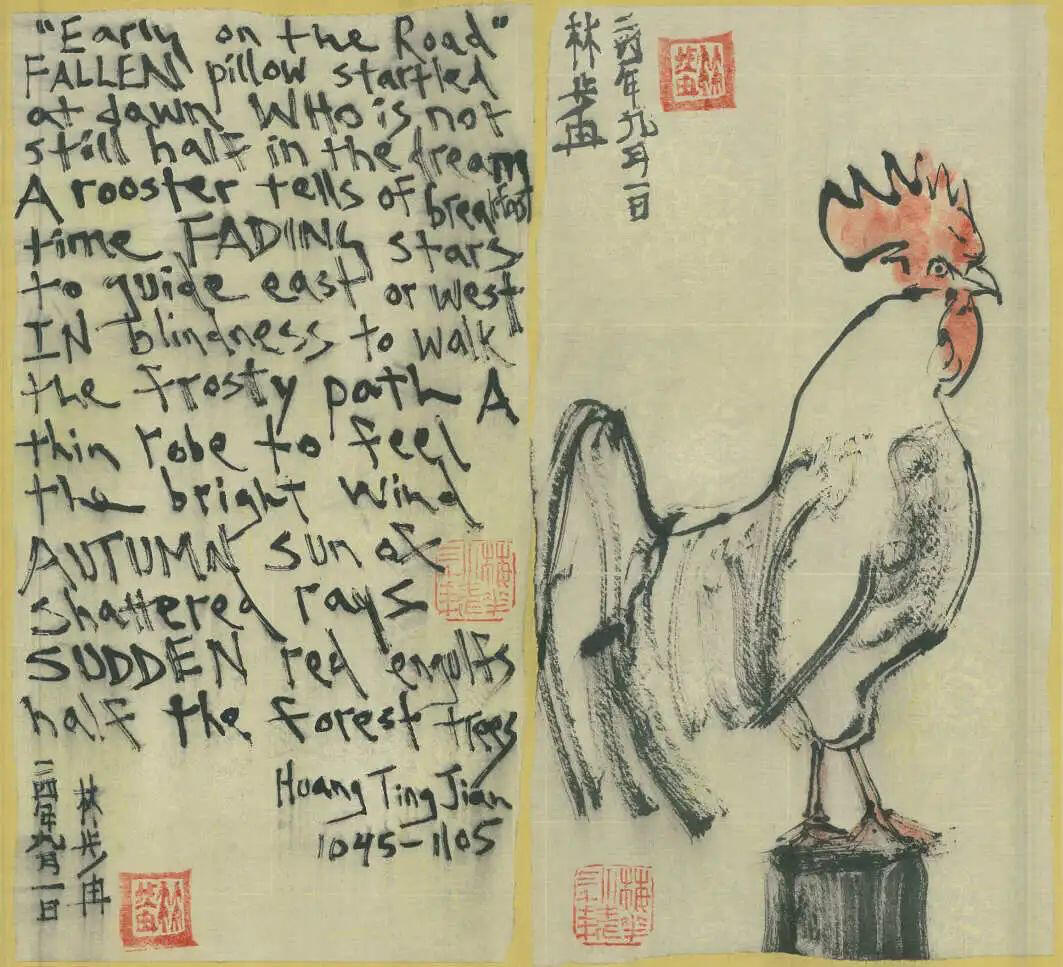 "Early on the Road"
FALLEN pillow startled
at dawn WHO is not
still half in the dream
A rooster tells of breakfast
time FADING stars
to guide east or west
IN blindness to walk
the frosty path A
thin robe to feel
the bright wind
AUTUMN sun of
shattered rays
SUDDEN red engulfs
half the forest trees
Huang Ting Jian
1045-1105
二四年九月一日
林步
二四年九月一日
林步